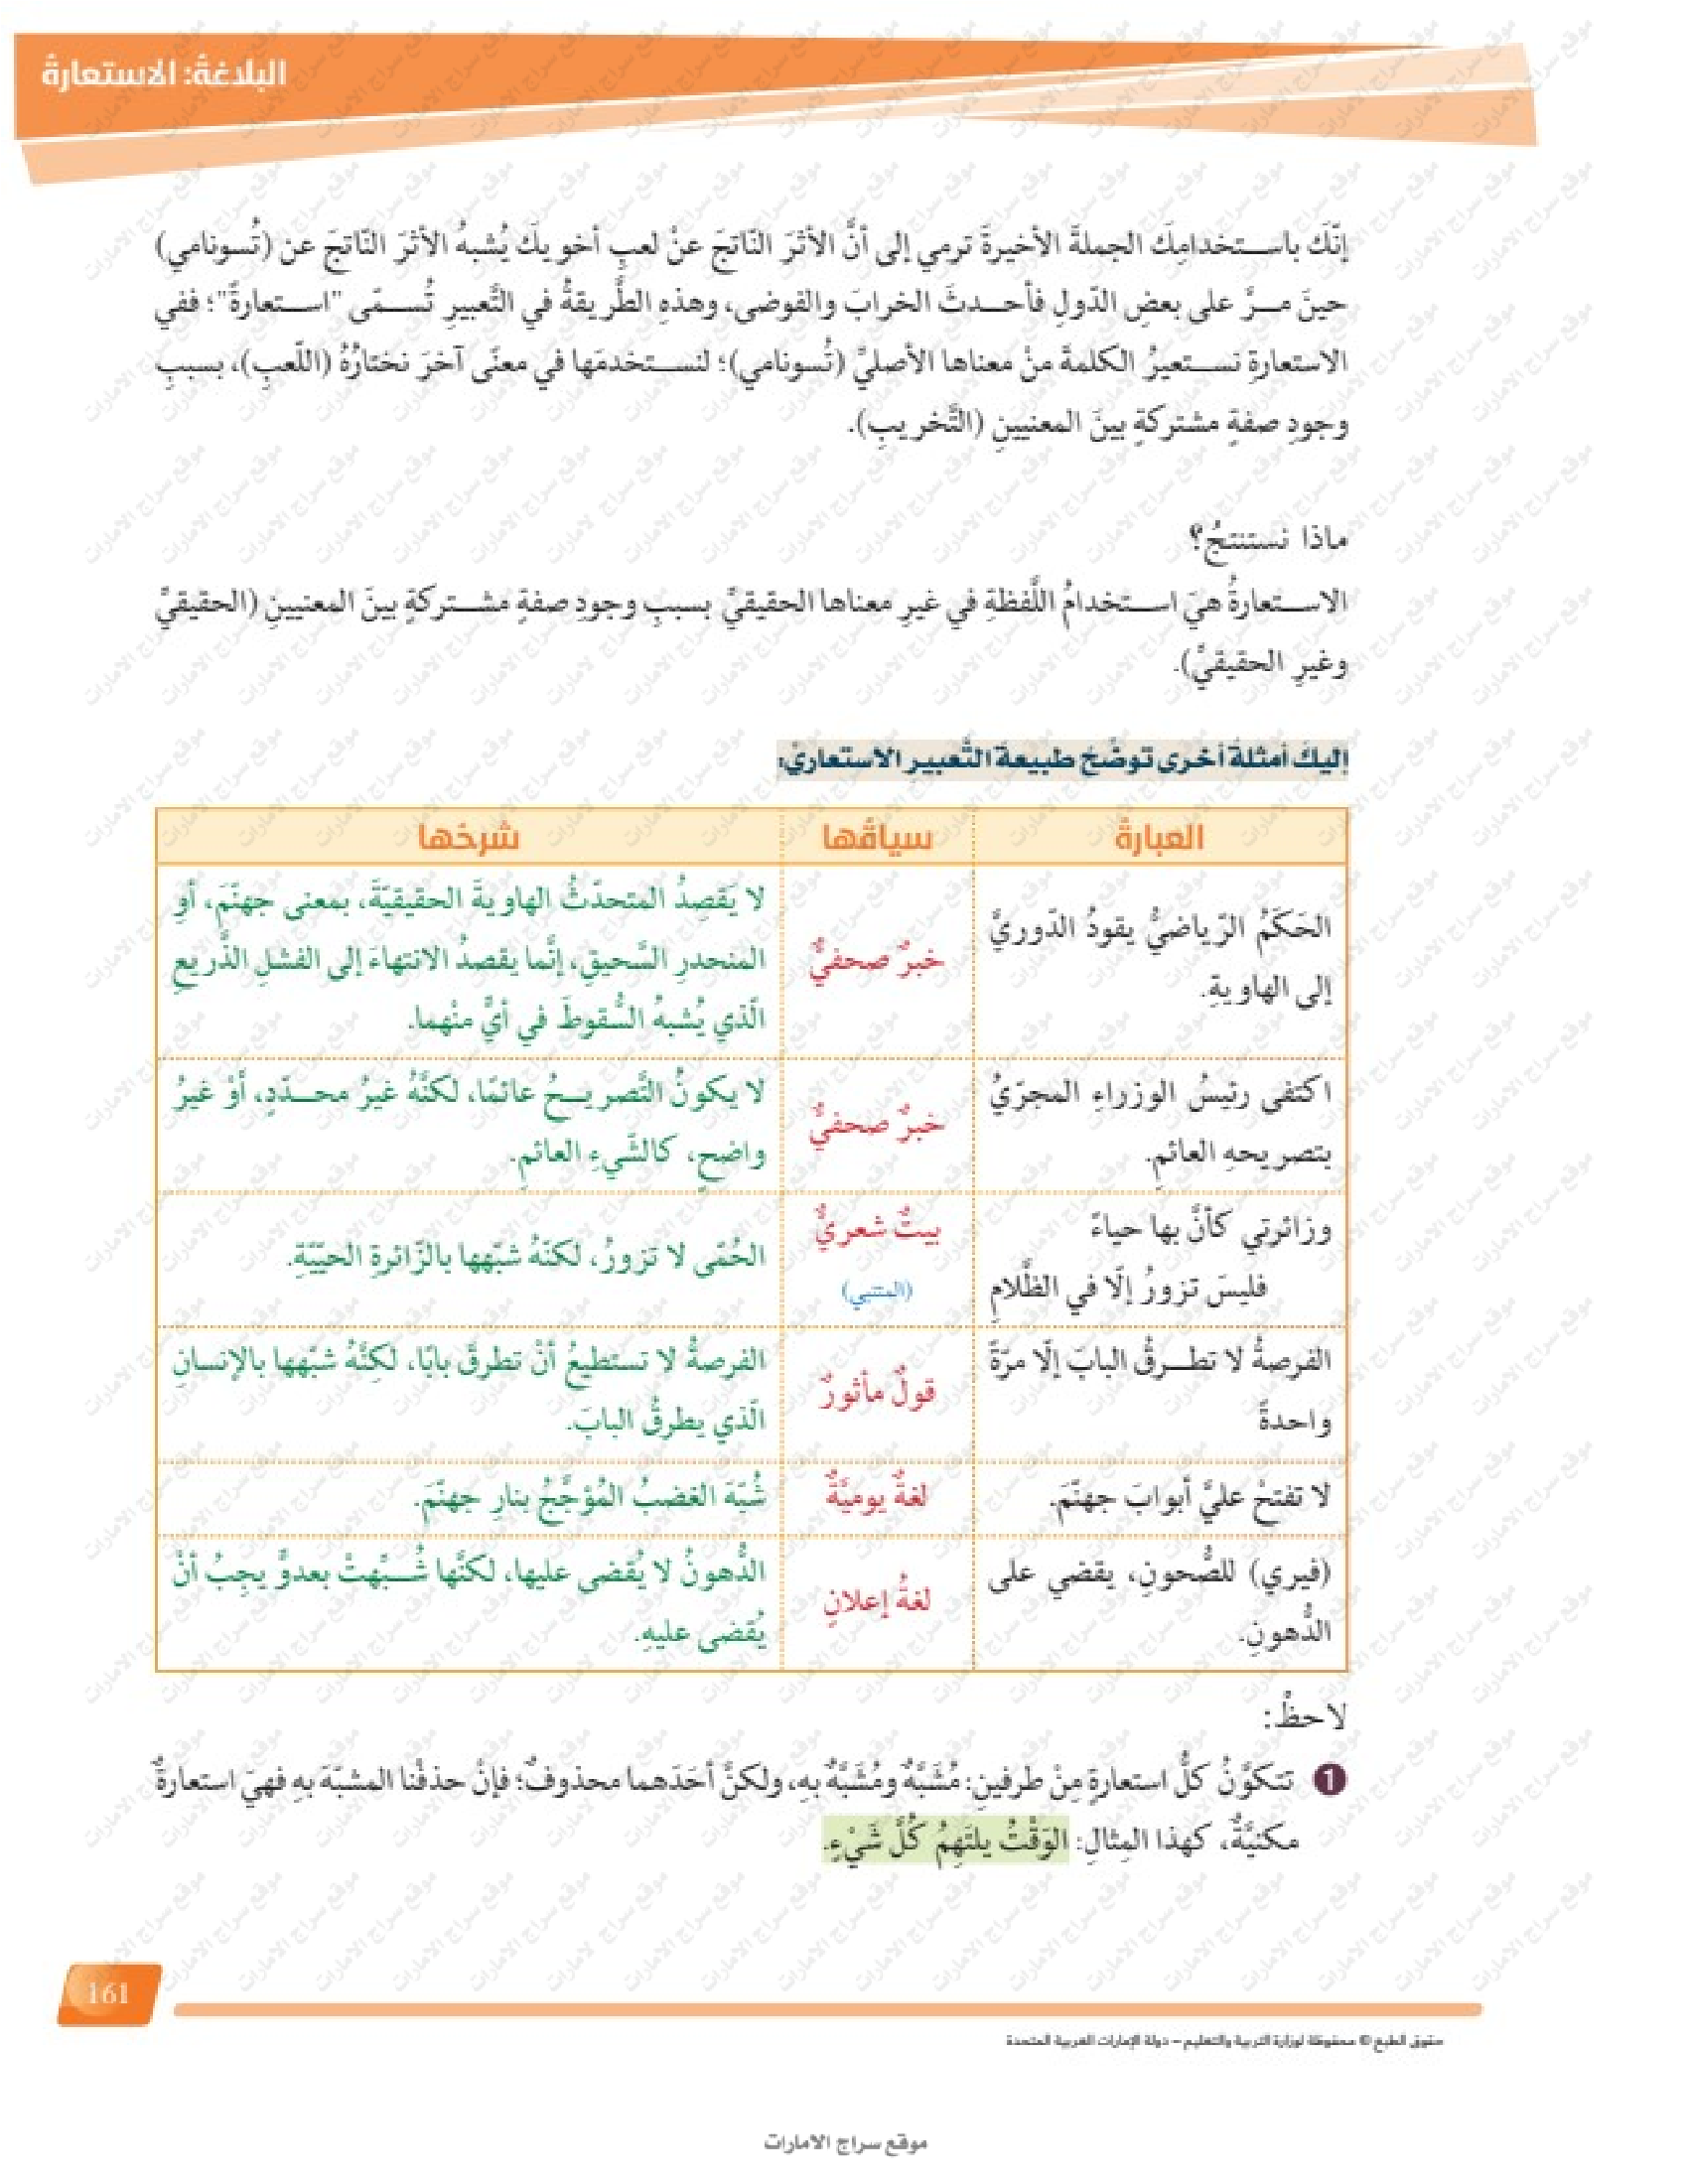 البلاغةُ: الاستعارةُ
إنّكَ باستخدامِكَ الجملةَ الأخيرةَ ترمي إلى أنَّ الأثرَ النّاتجَ عنْ لعبِ أخويكَ يُشبهُ الأثرَ النّاتجَ عن (تُسونامي)
حينَ مرَّ على بعضِ الدّولِ فأحدثَ الخرابَ والفوضى، وهذهِ الطَّريقةُ في التَّعبيرِ تُسمّى "استعارةً"؛ ففي
الاستعارةِ نستعيرُ الكلمةَ منْ معناها الأصليِّ (تُسونامي)؛ لنستخدمَها في معنًى آخرَ نختارُهُ (اللّعبِ)، بسببِ
وجودِ صفةٍ مشتركةٍ بينَ المعنيينِ (التَّخريبِ).
ماذا نستنتجُ؟
الاستعارةُ هيَ استخدامُ اللَّفظةِ في غيرِ معناها الحقيقيِّ بسببِ وجودِ صفةٍ مشتركةٍ بينَ المعنيينِ (الحقيقيِّ
وغيرِ الحقيقيِّ).
إليكَ أمثلةً أخرى توضِّحُ طبيعةَ التَّعبيرِ الاستعاريِّ:
العبارةُ
سياقُها
شرحُها
الحَكَمُ الرّياضيُّ يقودُ الدّوريَّ
إلى الهاويةِ.
خبرٌ صحفيٌّ
لا يَقصِدُ المتحدّثُ الهاويةَ الحقيقيّةَ، بمعنى جهنّمَ، أوِ
المنحدرِ السَّحيقِ، إنَّما يقصدُ الانتهاءَ إلى الفشلِ الذَّريعِ
الّذي يُشبهُ السُّقوطَ في أيٍّ منْهما.
اكتفى رئيسُ الوزراءِ المجرّيُّ
بتصريحهِ العائمِ.
خبرٌ صحفيٌّ
لا يكونُ التَّصريحُ عائمًا، لكنَّهُ غيرُ محدّدٍ، أوْ غيرُ
واضحٍ، كالشَّيءِ العائمِ.
وزائرتي كأنَّ بها حياءً
فليسَ تزورُ إلّا في الظَّلامِ
بيتٌ شعريٌّ
(المتنبي)
الحُمّى لا تزورُ، لكنّهُ شبّهها بالزّائرةِ الحيّيّةِ.
الفرصةُ لا تطرقُ البابَ إلّا مرّةً
واحدةً
قولٌ مأثورٌ
الفرصةُ لا تستطيعُ أنْ تطرقَ بابًا، لكنَّهُ شبّهها بالإنسانِ
الّذي يطرقُ البابَ.
لا تفتحْ عليَّ أبوابَ جهنّمَ.
لغةٌ يوميّةٌ
شُبّهَ الغضبُ المُؤجَّجُ بنارِ جهنّمَ.
(فيري) للصُّحونِ، يقضي على
الدُّهونِ.
لغةُ إعلانٍ
الدُّهونُ لا يُقضى عليها، لكنَّها شُبّهتْ بعدوٍّ يجبُ أنْ
يُقضى عليهِ.
لاحظْ:
1 تتكوَّنُ كلُّ استعارةٍ مِنْ طرفينِ: مُشَبَّهٌ ومُشَبَّهٌ بهِ، ولكنَّ أحَدَهما محذوفٌ؛ فإنْ حذفْنا المشبّهَ بهِ فهيَ استعارةٌ
مكنيَّةٌ، كهذا المِثالِ: الوَقْتُ يلتَهِمُ كُلَّ شَيْءٍ.
161
حقوق الطبع © محفوظة لوزارة التربية والتعليم – دولة الإمارات العربية المتحدة
موقع سراج الامارات